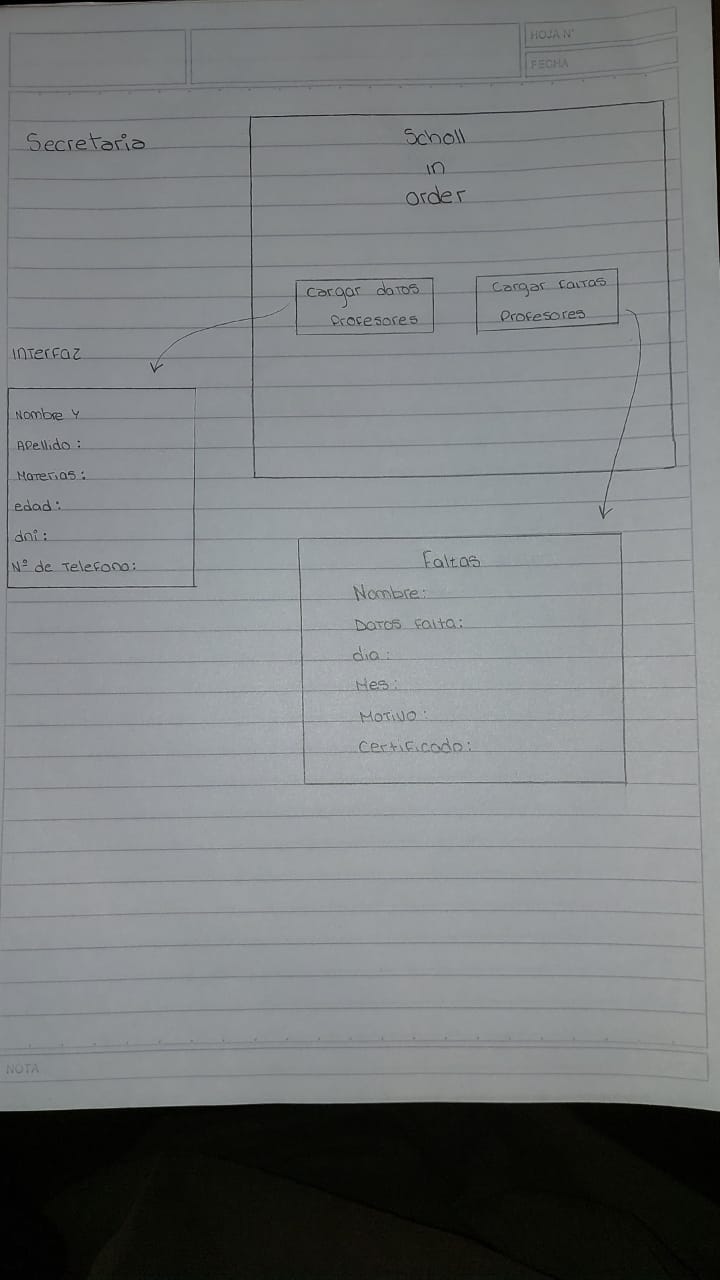 HOJA N°
FECHA
Secretaria
Scholl
in
order
cargar datos
Profesores
Cargar faltas
Profesores
Interfaz
Nombre y
Apellido :
Materias :
edad :
dni :
N° de Telefono :
Faltas
Nombre:
Datos falta :
dia :
Mes :
Motivo :
Certificado :
NOTA